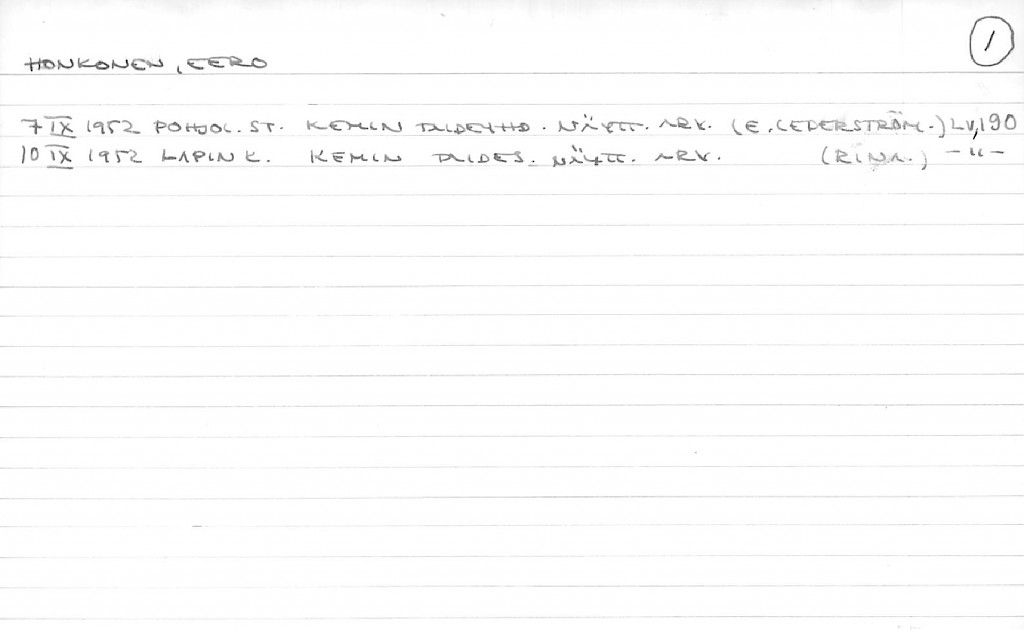 1
HONKONEN, EERO
7 IX 1952 POHJOL. ST. KEMIN TAIDEYHD. NÄYTT. ARV. (E. CEDERSTRÖM.) LV,190
10 IX 1952 LAPIN K. KEMIN TAIDES. NÄYTT. ARV. (RINA.) -"-